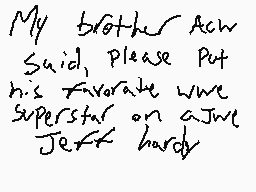 My brother Acw
Said, please Put
his favorate wwe
superstar on
Jeff hardy